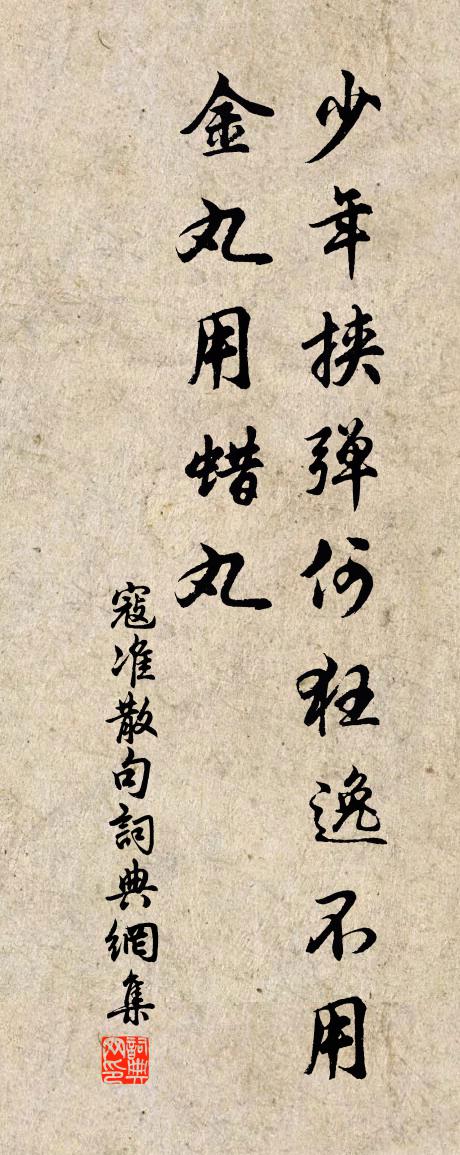 少年挟弹何狂逸不用
金丸用蜡丸
寇准散句詞典網集
詞典网印